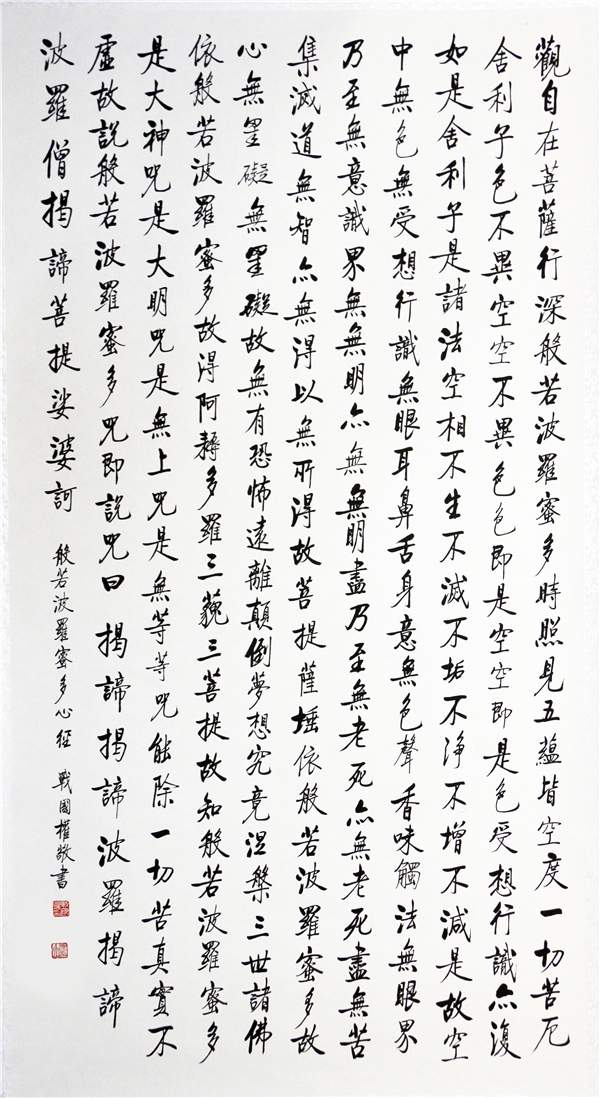 觀自在菩薩行深般若波羅蜜多時照見五蘊皆空度一切苦厄
舍利子色不異空空不異色色即是空空即是色受想行識亦復
如是舍利子是諸法空相不生不滅不垢不淨不增不減是故空
中無色無受想行識無眼耳鼻舌身意無色聲香味觸法無眼界
乃至無意識界無無明亦無無明盡乃至無老死亦無老死盡無苦
集滅道無智亦無得以無所得故菩提薩埵依般若波羅蜜多故
心無罣礙無罣礙故無有恐怖遠離顛倒夢想究竟涅槃三世諸佛
依般若波羅蜜多故得阿耨多羅三藐三菩提故知般若波羅蜜多
是大神咒是大明咒是無上咒是無等等咒能除一切苦真實不
虛故說般若波羅蜜多咒即說咒曰 揭諦揭諦波羅揭諦
波羅僧揭諦菩提娑婆訶 般若波羅蜜多心經 戰國權敬書